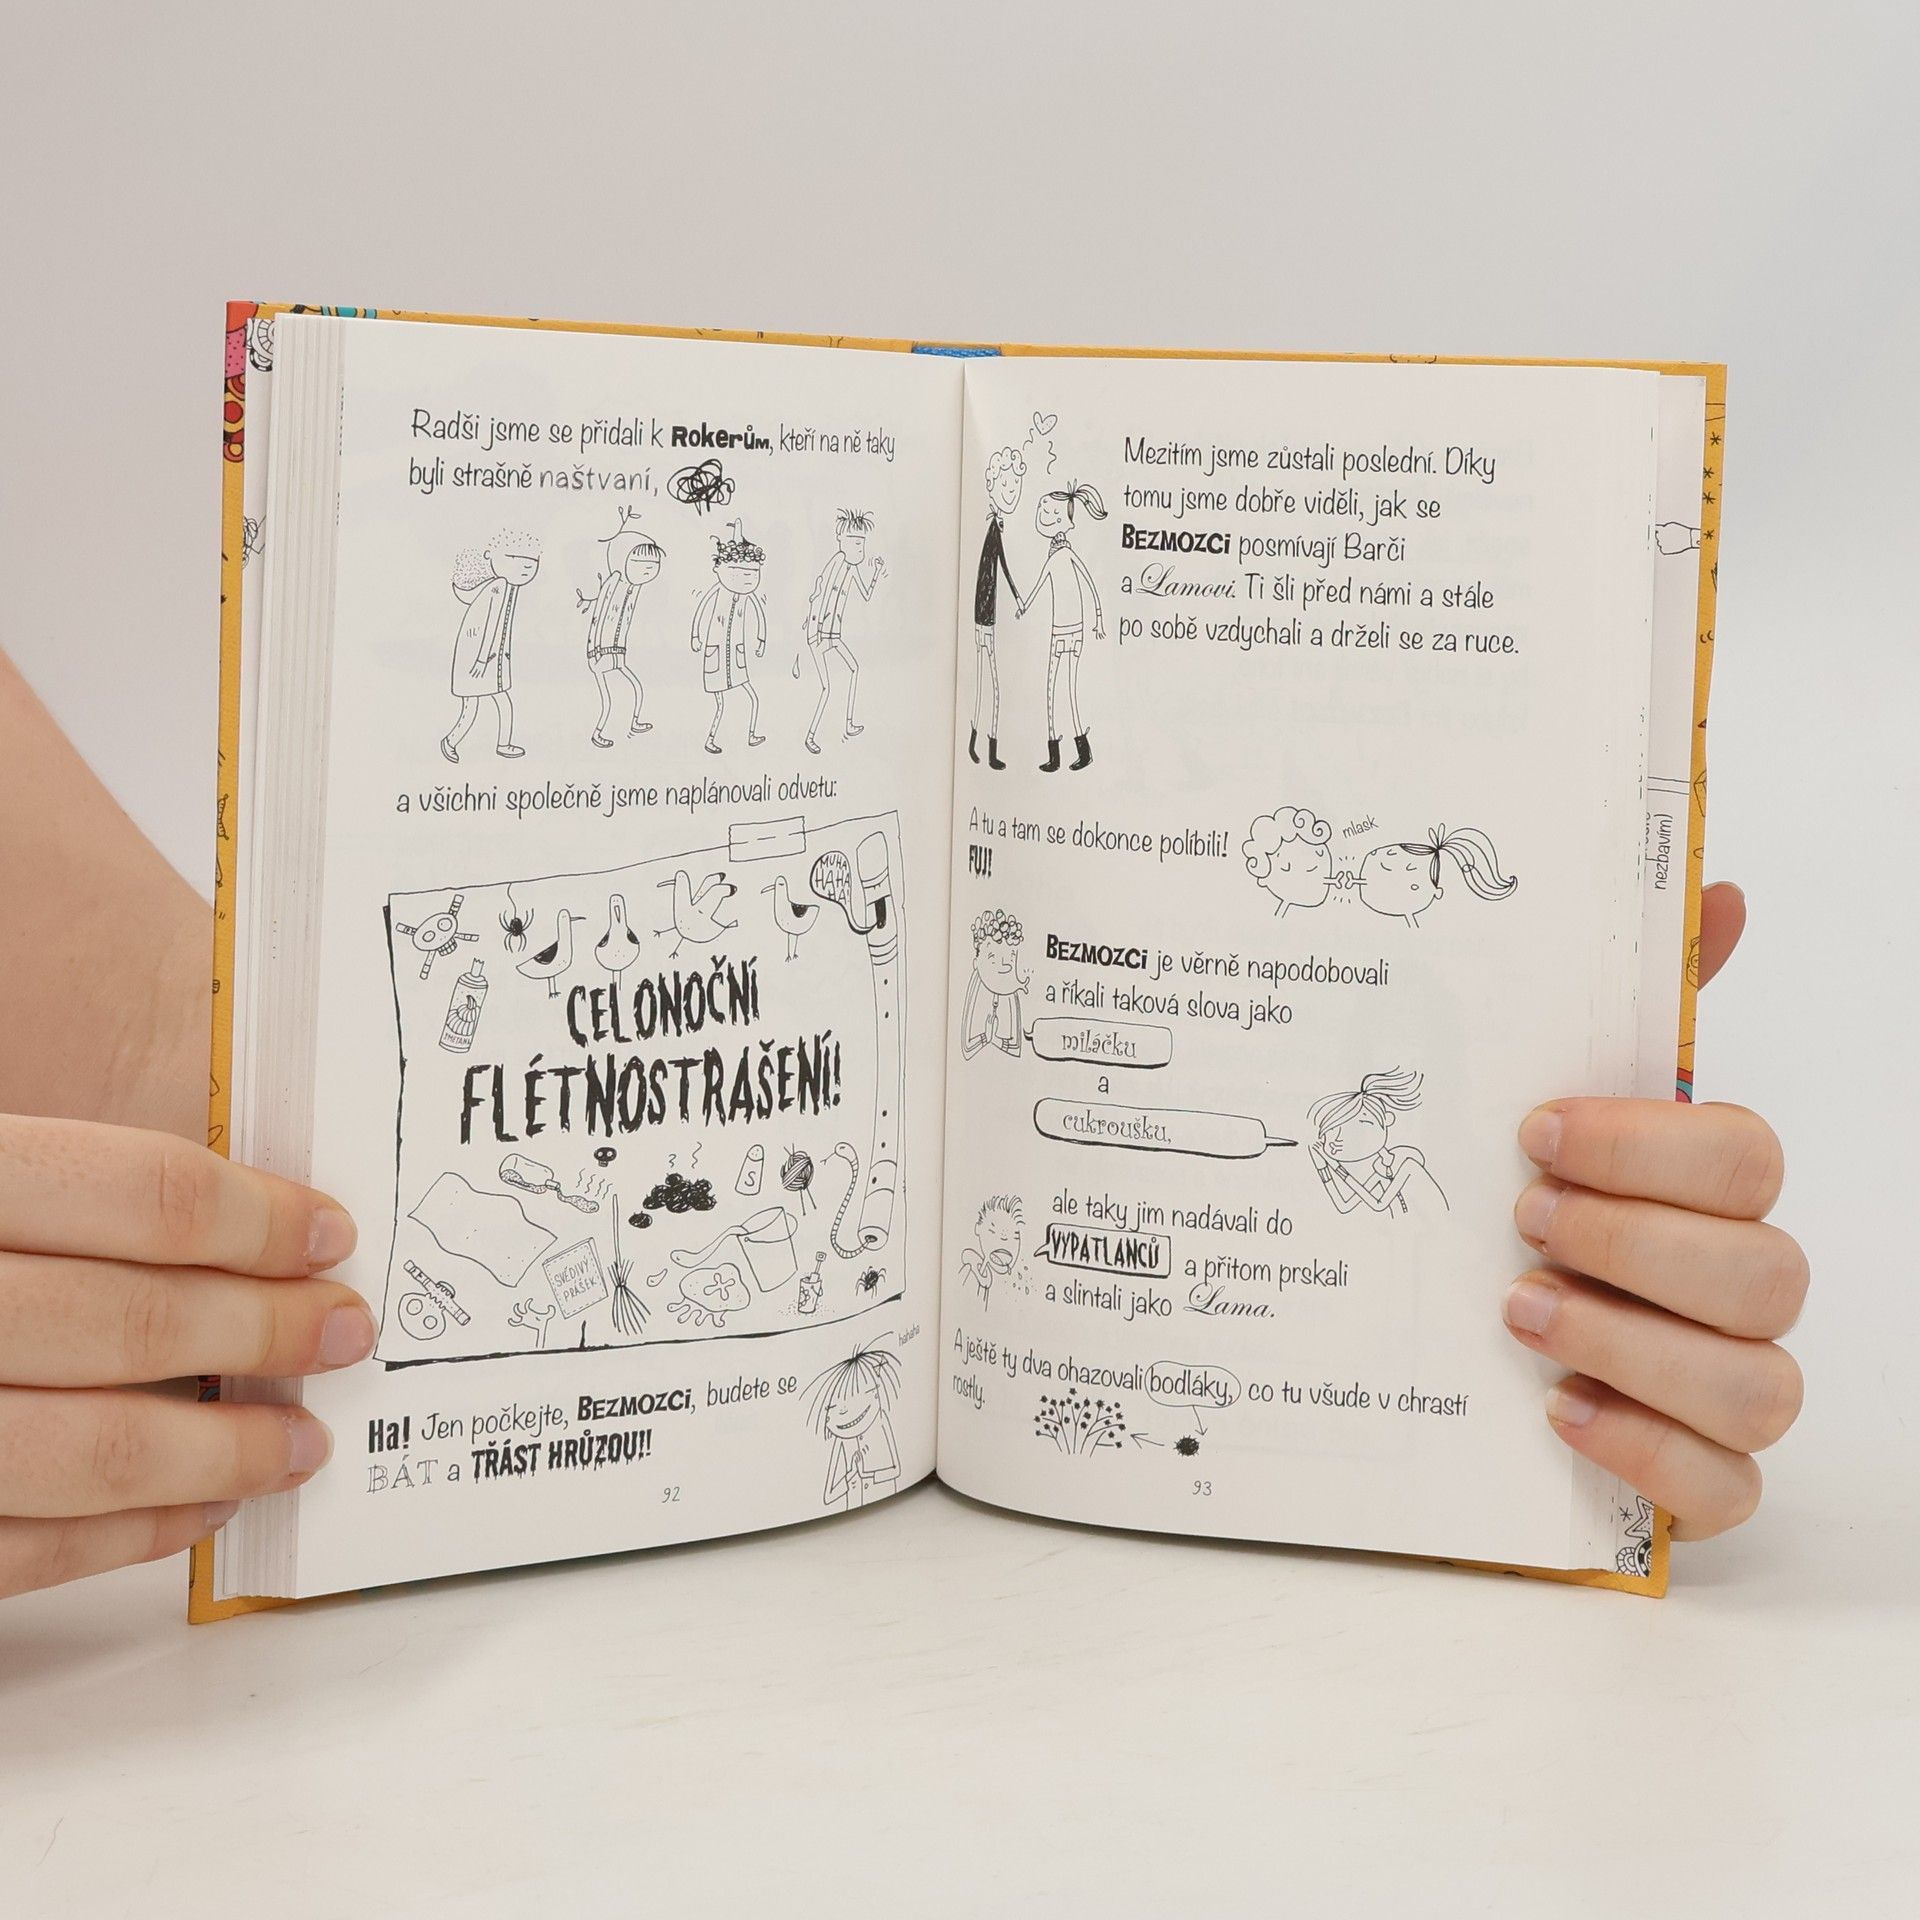 Radši jsme se přidali k Rokerům, kteří na ně taky
byli strašně naštvaní,
a všichni společně jsme naplánovali odvetu:
MUHA
HAHA
HA!
SMETANA
CELONOČNÍ
FLÉTNOSTRAŠENÍ!
S
SVĚDIVÝ
PRÁŠEK
hahaha
Ha! Jen počkejte, BEZMOZCI, budete se
BÁT a TŘÁST HRŮZOU!!
92
Mezitím jsme zůstali poslední. Díky
tomu jsme dobře viděli, jak se
BEZMOZCI posmívají Barči
a Lamovi. Ti šli před námi a stále
po sobě vzdychali a drželi se za ruce.
A tu a tam se dokonce políbili!
FUJ!
mlask
BEZMOZCI je věrně napodobovali
a říkali taková slova jako
miláčku
a
cukroušku,
ale taky jim nadávali do
VYPATLANCŮ a přitom prskali
a slintali jako Lama.
A ještě ty dva ohazovali bodláky, co tu všude v chrastí
rostly.
93
nezbavím)